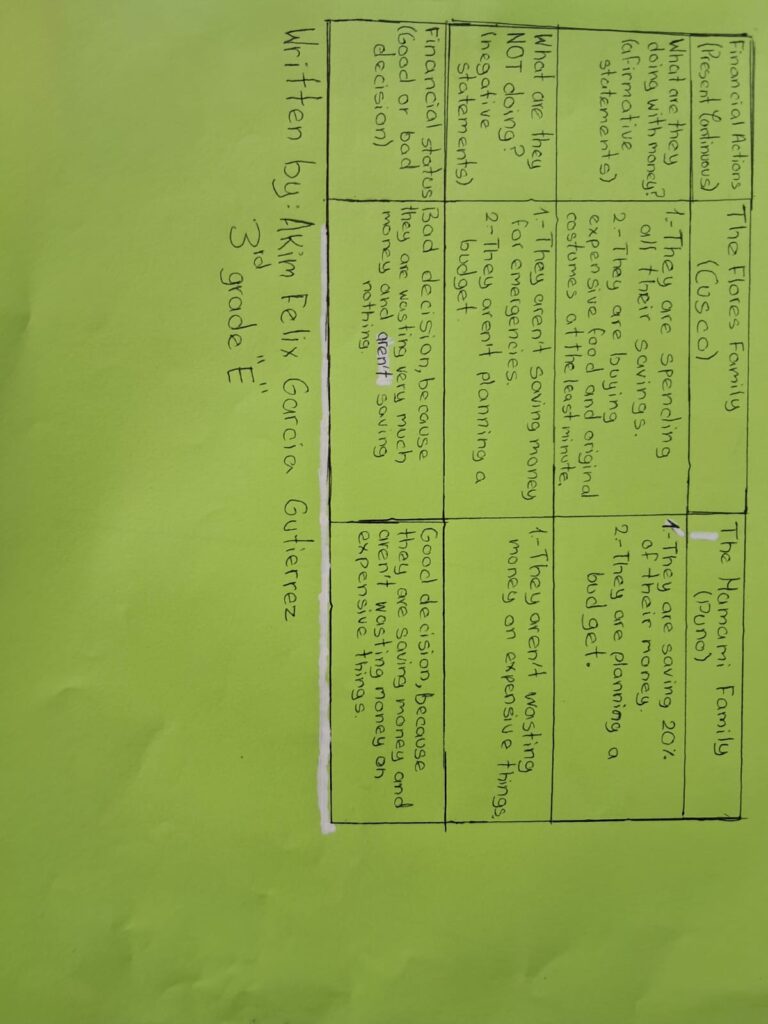 Financial Actions
(Present Continuous)
The Flores Family
(Cusco)
The Mamami Family
(Puno)
What are they
doing with money?
(afirmative
statements)
1.- They are spending
all their savings.
2.- They are buying
expensive food and original
costumes at the least minute.
1.- They are saving 20%
of their money.
2.- They are planning a
budget.
What are they
NOT doing?
(negative
statements)
1.- They aren't saving money
for emergencies.
2.- They aren't planning a
budget.
1.- They aren't wasting
money on expensive things.
Financial status
(Good or bad
decision)
Bad decision, because
they are wasting very much
money and aren't saving
nothing.
Good decision, because
they are saving money and
aren't wasting money on
expensive things.
Written by: Akim Felix Garcia Gutierrez
3rd grade "E"